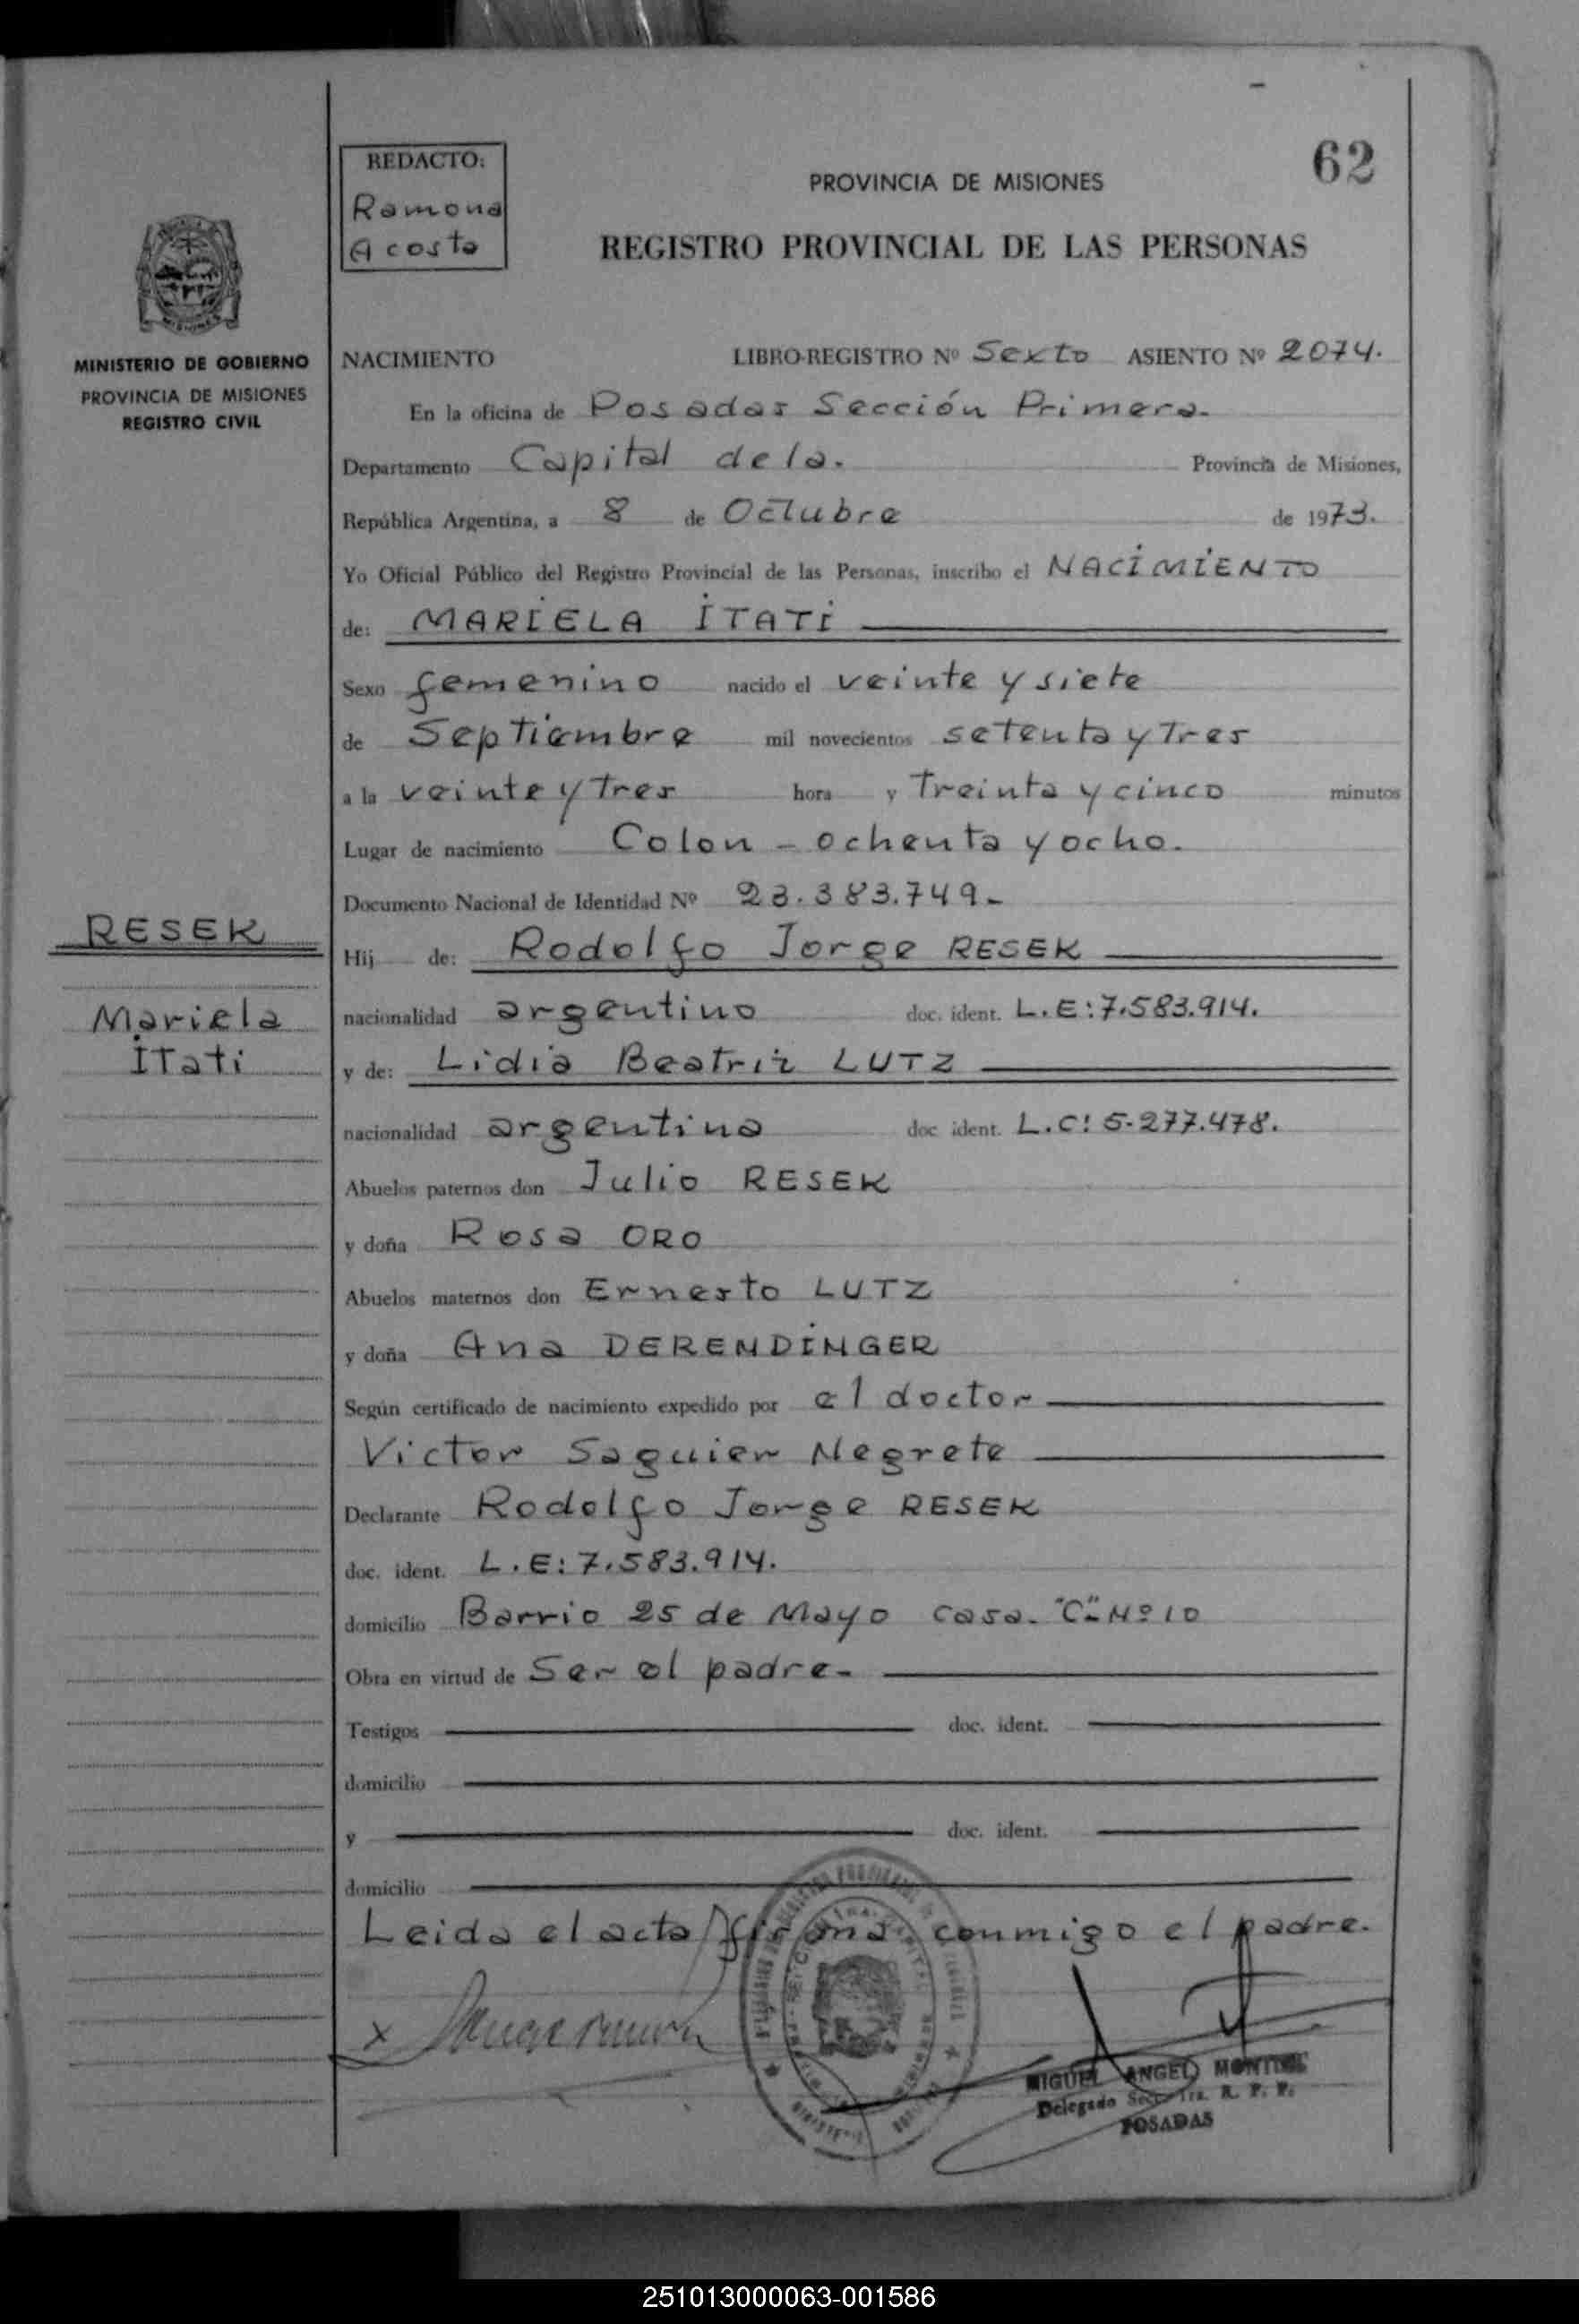 62
REDACTO:
Ramona
Acosta
PROVINCIA DE MISIONES
REGISTRO PROVINCIAL DE LAS PERSONAS
MISIONES
MINISTERIO DE GOBIERNO
PROVINCIA DE MISIONES
REGISTRO CIVIL
NACIMIENTO LIBRO-REGISTRO Nº Sexto ASIENTO Nº 2074.
En la oficina de Posadas Sección Primera.
Departamento Capital de la. Provincia de Misiones,
República Argentina, a 8 de Octubre de 1973.
Yo Oficial Público del Registro Provincial de las Personas, inscribo el NACIMIENTO
de: MARIELA ITATI
Sexo femenino nacido el veinte y siete
de Septiembre mil novecientos setenta y Tres
a la veinte y Tres hora y Treinta y cinco minutos
Lugar de nacimiento Colon - ochenta y ocho.
Documento Nacional de Identidad Nº 23.383.749-
RESEK
Hij de: Rodolfo Jorge RESEK
Mariela
Itati
nacionalidad argentino doc. ident. L.E:7.583.914.
y de: Lidia Beatriz LUTZ
nacionalidad argentina doc ident. L.C: 5.277.478.
Abuelos paternos don Julio RESEK
y doña Rosa ORO
Abuelos maternos don Ernesto LUTZ
y doña Ana DERENDINGER
Según certificado de nacimiento expedido por el doctor
Victor Saguier Negrete
Declarante Rodolfo Jorge RESEK
doc. ident. L.E:7.583.914.
domicilio Barrio 25 de Mayo casa. "C" Nº 10
Obra en virtud de Ser el padre-
Testigos doc. ident.
domicilio
y doc. ident.
domicilio
Leida el acta firma conmigo el padre.
x
MIGUEL ANGEL
Delegado Secc. 1ra. R. P. P.
POSADAS
251013000063-001586